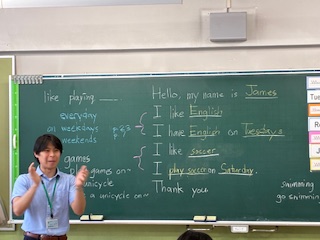 like playing ___
everyday
on weekdays
weekends
p.23
games
games on~
unicycle
a unicycle on~
Hello, my name is James
I like English
I have English on Tuesdays
I like soccer.
I play soccer on Saturday.
Thank you
swimming
go swimming